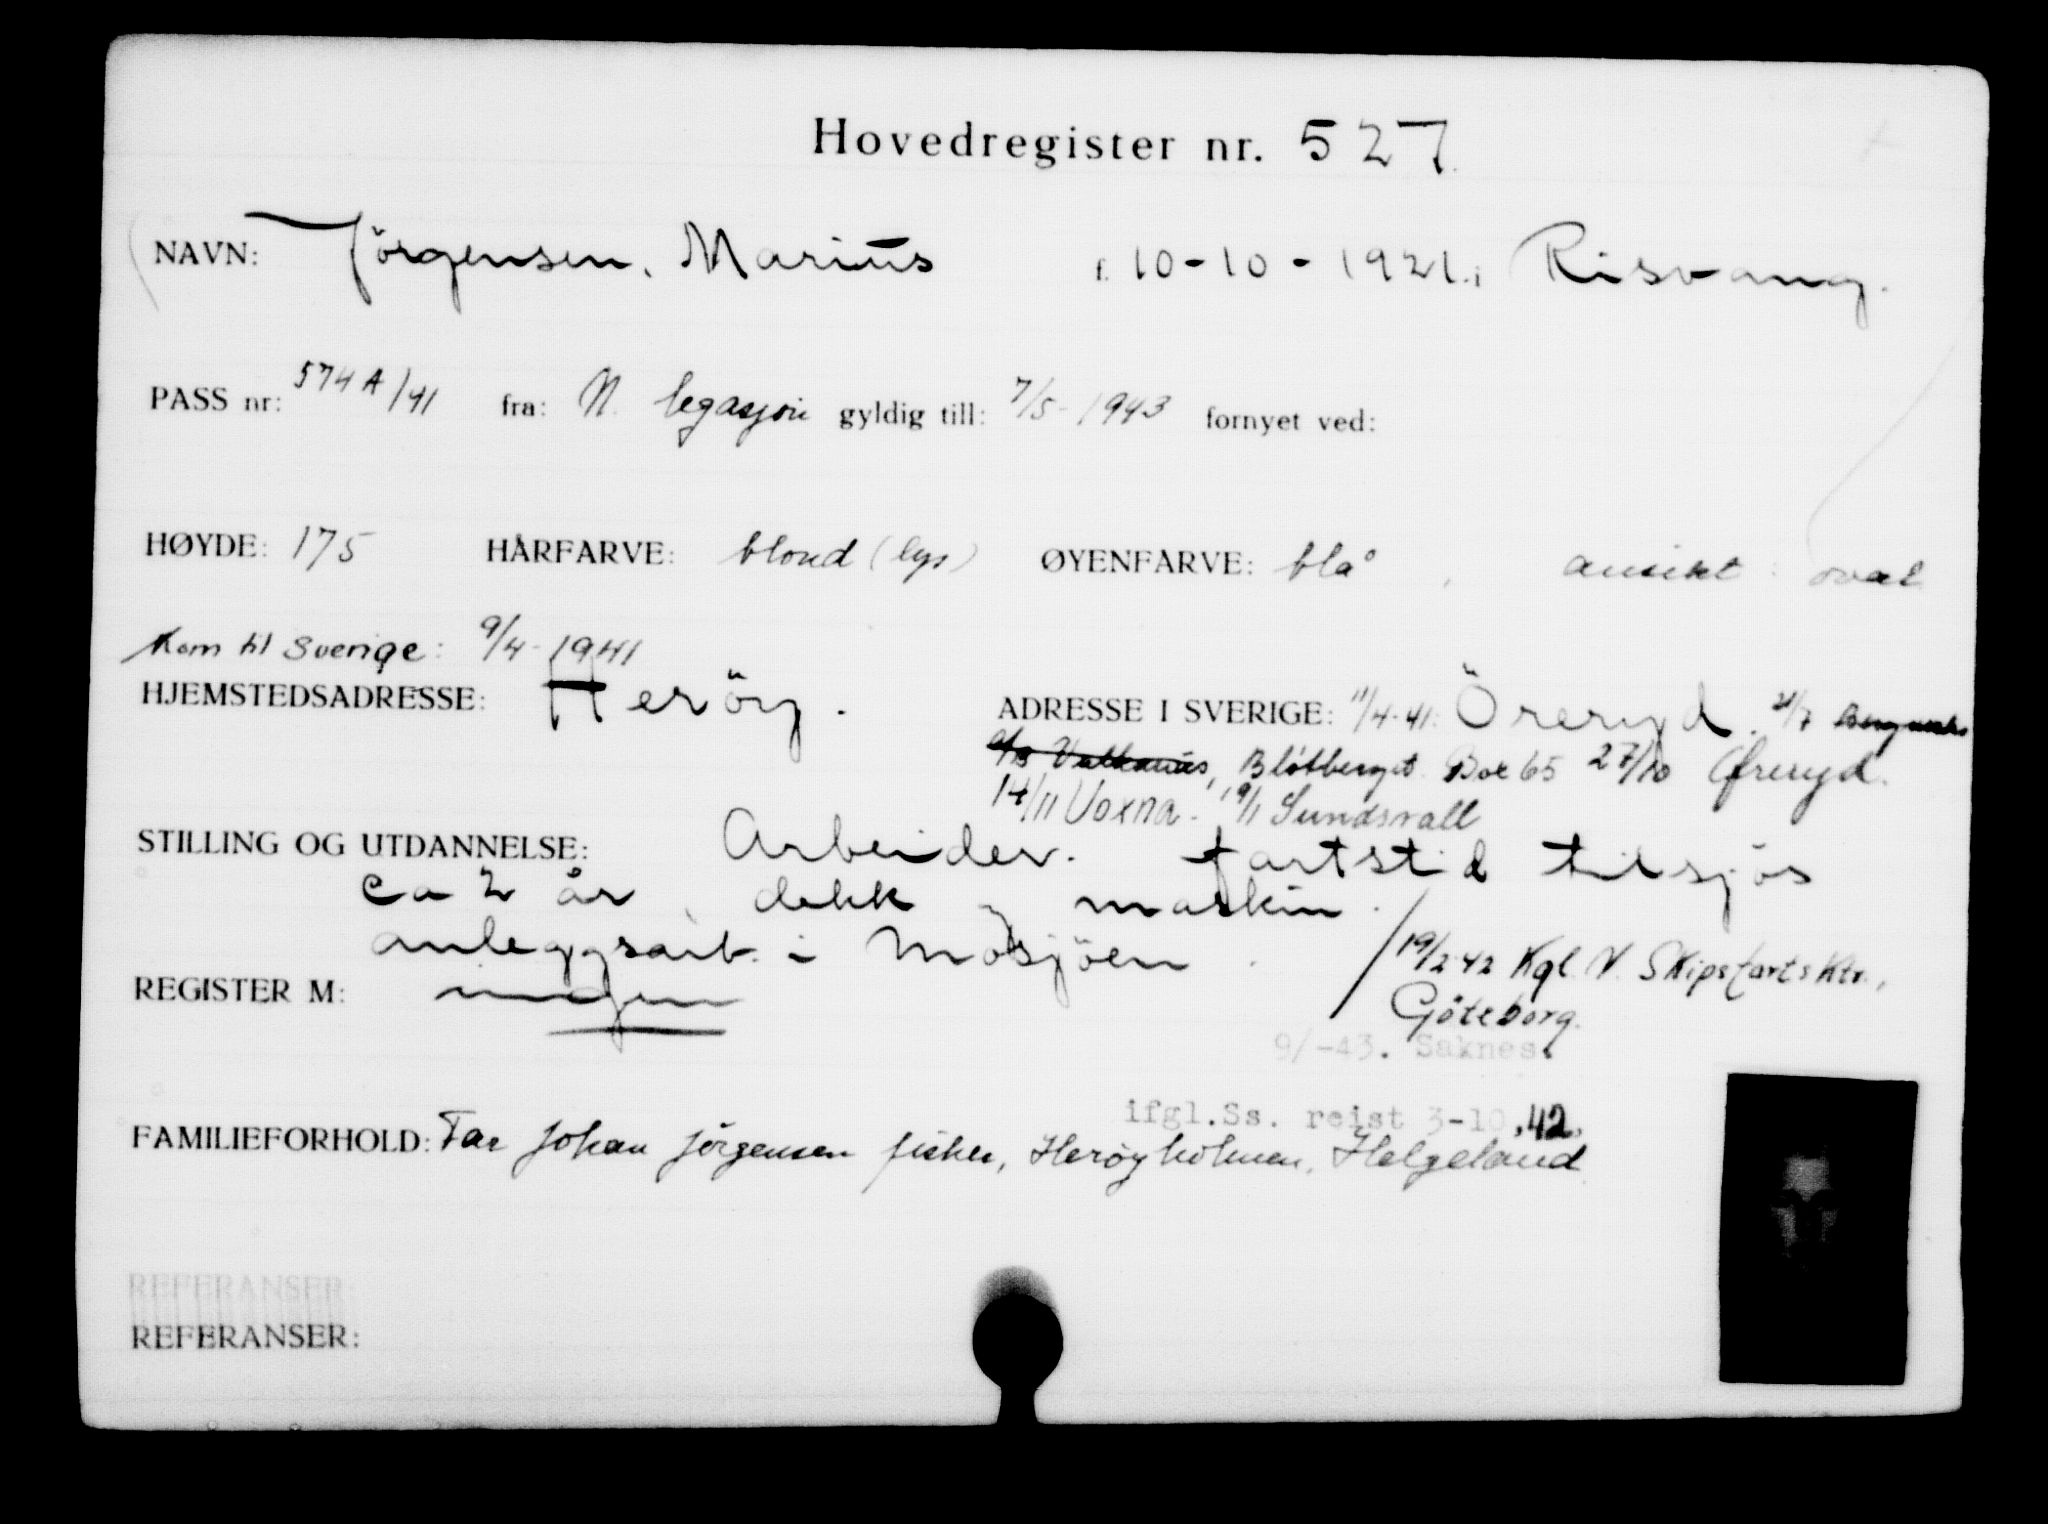 Hovedregister nr. 527
NAVN: Jörgensen, Marius f. 10-10-1921. i Risvang.
PASS nr: 574 A/41 fra: N. legasjon gyldig till: 7/5-1943 fornyet ved:
HØYDE: 175 HÅRFARVE: blond (lys) ØYENFARVE: blå, ansikt: oval
Kom til Sverige: 9/4-1941
HJEMSTEDSADRESSE: Heröy. ADRESSE I SVERIGE: 11/4-41: Öreryd. 21/7
Vulkanus, Blötberget. Box 65 27/10 Øreryd.
14/11 Voxna. 19/1 Sundsvall
STILLING OG UTDANNELSE: Arbeider. fartstid tilsjös
ca 2 år, dekk og maskin.
anleggsarb. i Mosjöen.
19/2-42 Kgl. N. Skipsfartsktr.,
REGISTER M: ingen
Göteborg.
9/-43. Saknes.
ifgl.Ss. reist 3-10.42.
FAMILIEFORHOLD: Far Johan Jörgensen fisker, Herøyholmen, Helgeland
REFERANSER:
REFERANSER: